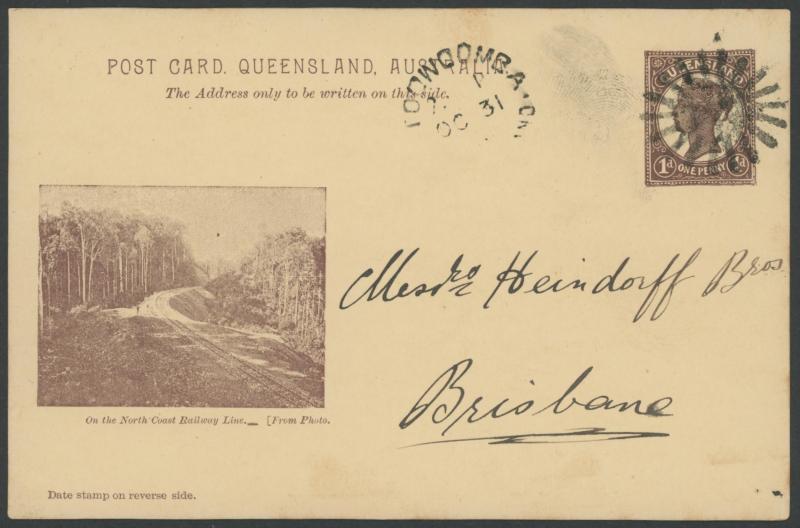 POST CARD. QUEENSLAND, AUSTRALIA.
The Address only to be written on this side.
TOOWOOMBA
A
OC 31
QUEENSLAND
1d ONE PENNY 1d
Messrs Heindorff Bros
Brisbane
On the North Coast Railway Line._ [From Photo.
Date stamp on reverse side.